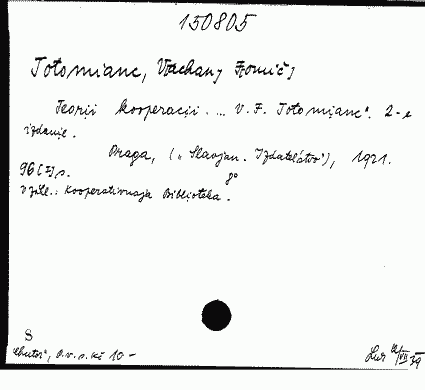 150805
Totomianc, Vachan
Teorii kooperacii. ... V. F. Totomianc". 2-e
izdanie.
Praga, („Slavjan. Izdatelstvo"), 1921.
96 [I] s. 8°
v záhl.: Kooperativnaja Biblioteka.
8
"Chutor", Kč 10 –